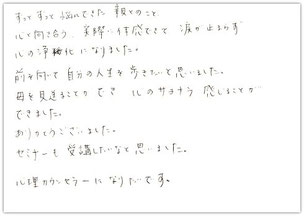 ずっとずっと悩んできた 親とのこと
心と向き合う、実際に体感できて、涙が止まらず
心の浄化になりました。
前を向いて自分の人生を歩きたいと思いました。
母を見送ることができ 心のサヨナラ 感じることが
できました。
ありがとうございました。
セミナーも受講したいなと思いました。
心理カウンセラーになりたいです。